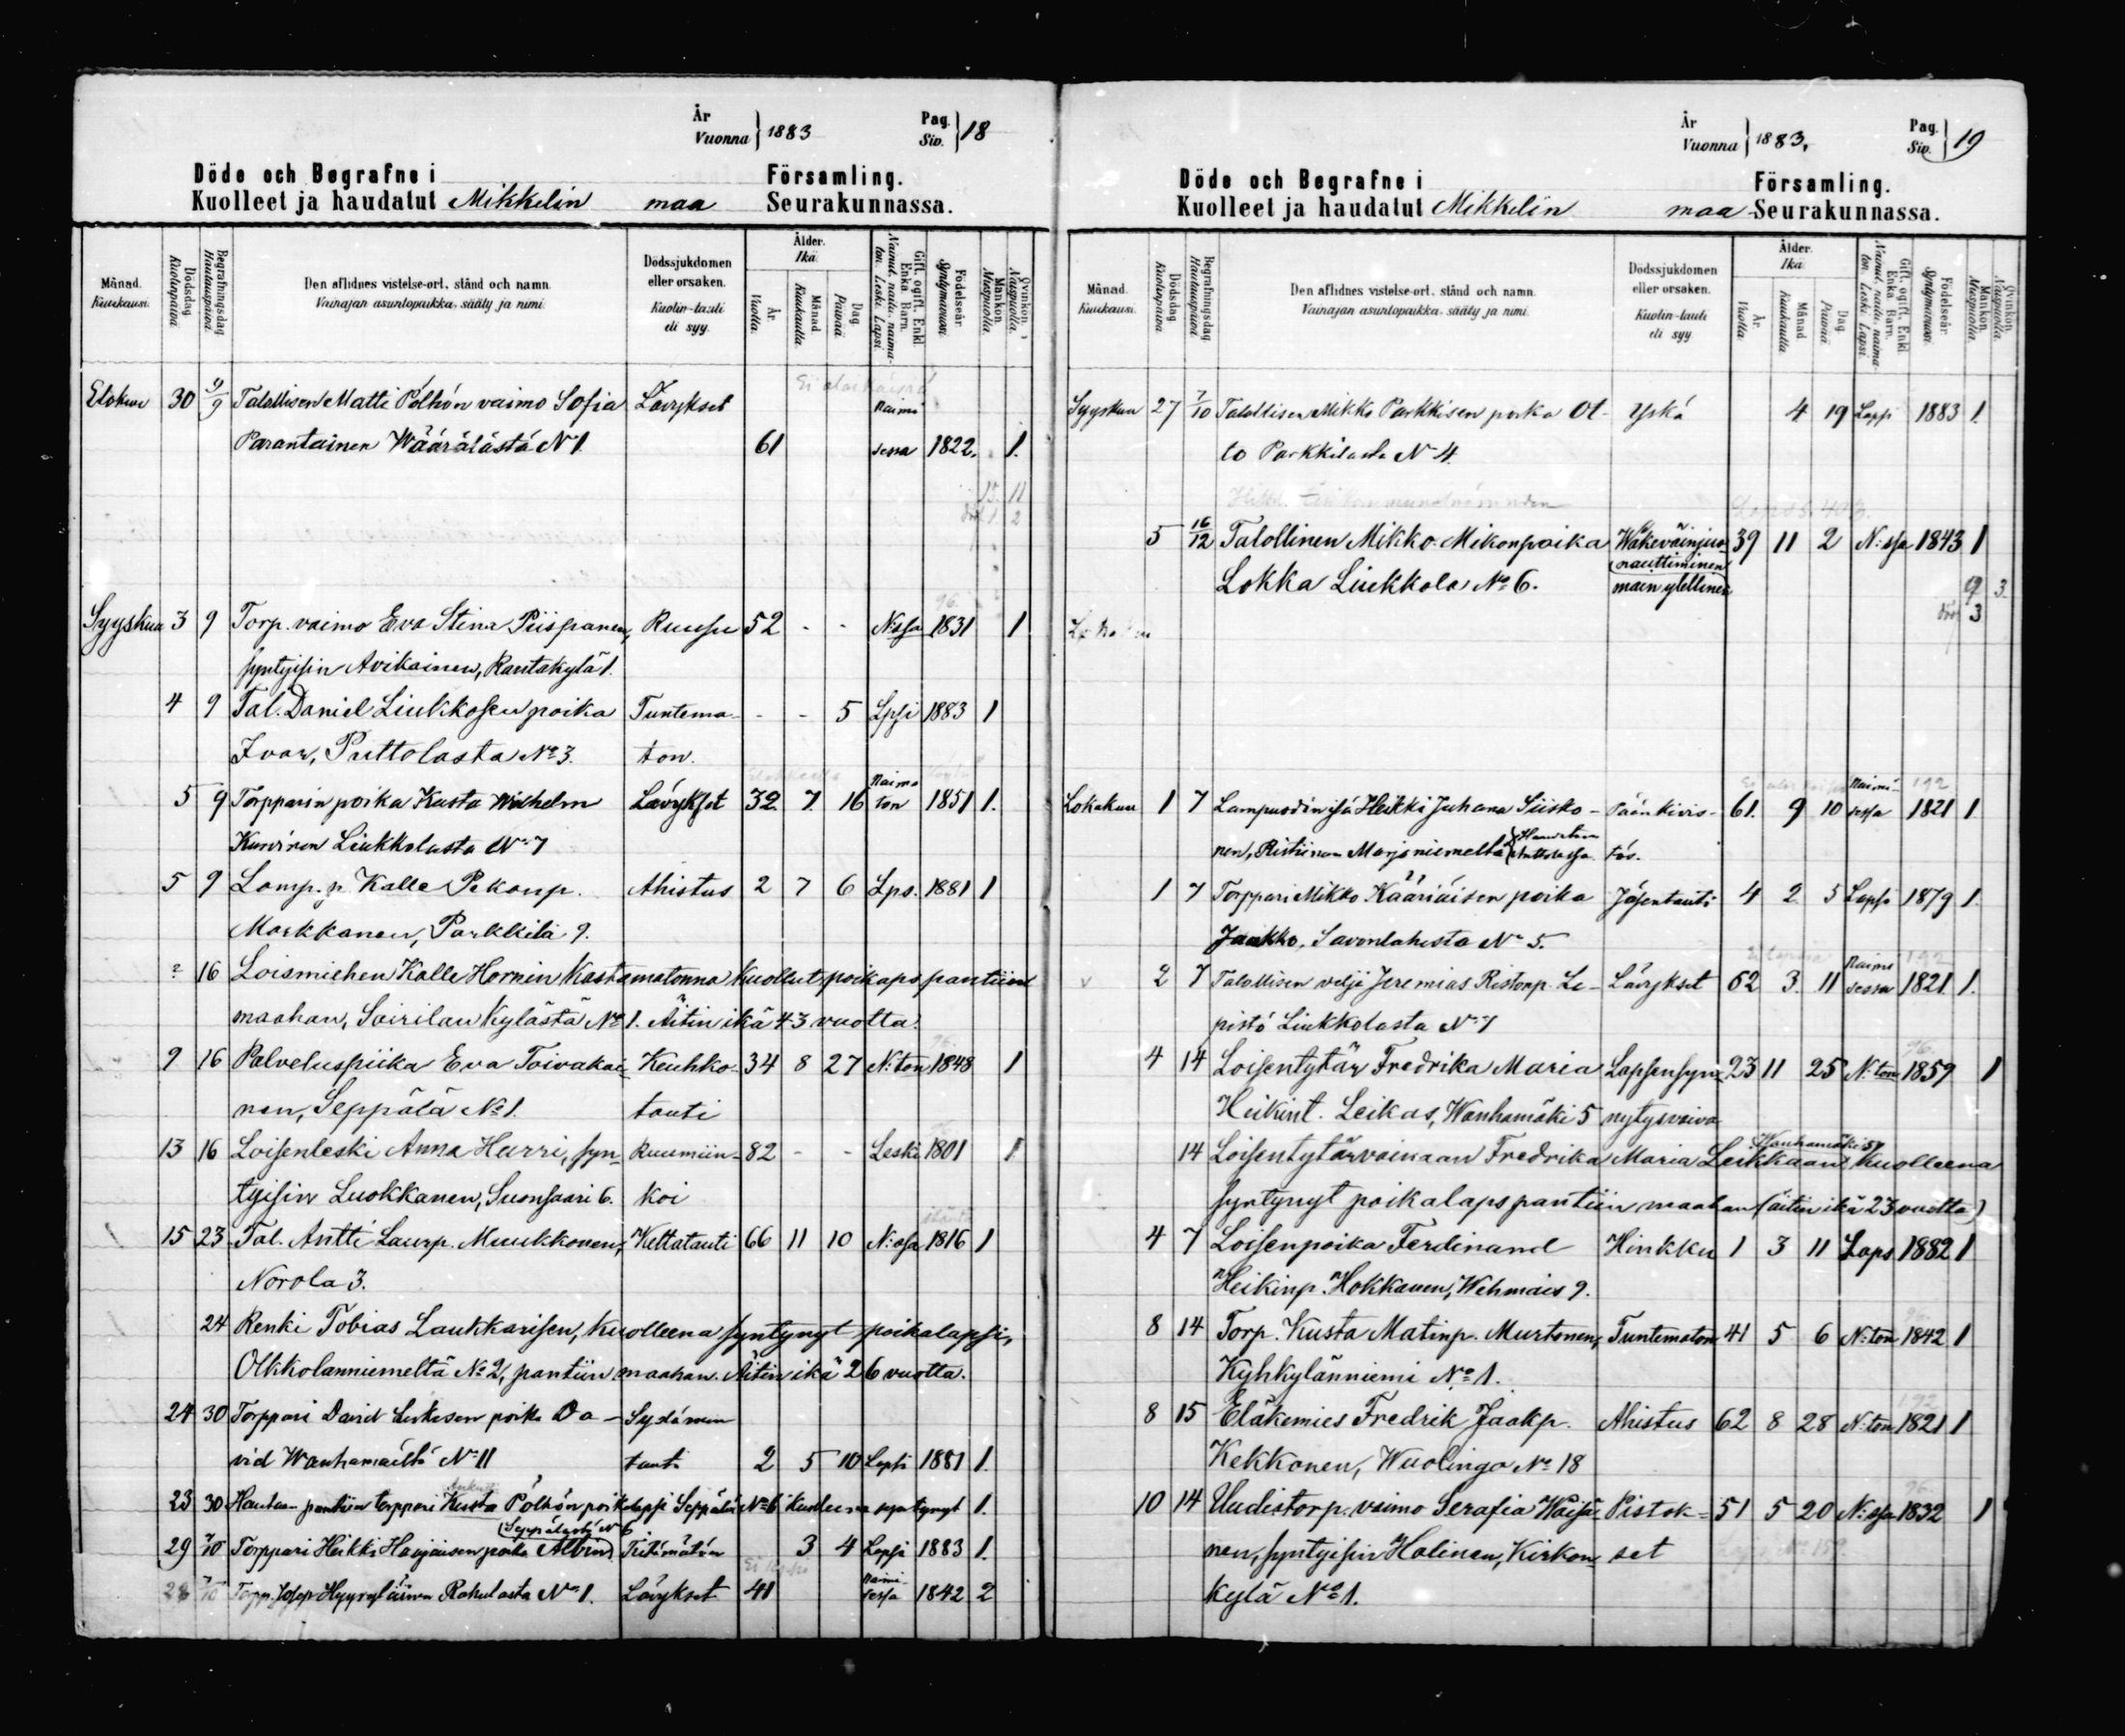 År
Vuonna } 1883
Pag.
Siv. } 18
Döde och Begrafne i Församling.
Kuolleet ja haudatut Mikkelin maa Seurakunnassa.
Månad. Kuukausi.
Dödsdag. Kuolinpäivä.
Begrafningsdag. Hautauspäivä.
Den aflidnes vistelse-ort, stånd och namn.
Vainajan asuntopaikka, sääty ja nimi.
Dödssjukdomen eller orsaken.
Kuolin-tauti eli syy.
Ålder. Ikä.
År. Vuotta.
Månad. Kuukautta.
Dag. Päivää.
Gift, ogift, Enkl. Enka, Barn.
Nainut, naitu, naimaton, Leski, Lapsi
Födelseår. Syntymävuosi.
Mankön. Miespuolia.
Qvinkön. Naispuolia.
Elokuu 30 9/9 Talollisen Matti Pölhön vaimo Sofia Lävykset naimi
Parantainen Wäärälästä N 1. 61 sessa 1822. 1.
15. 11
1 2
Syyskuu 3 9 Torp. vaimo Eva Stina Piispanen, Ruusu 52 - - N:ssa 1831 1
syntyisin Avikainen, Rantakylä 1.
4 9 Tal. Daniel Liukkosen poika Tuntema- - - 5 Lpsi 1883 1
Ivar, Puttolasta No 3. ton.
5 9 Torpparin poika Kusta Wilhelm Lävykset 32 7 16 Naima ton 1851 1.
Liukkolasta No 7
5 9 Lamp. p. Kalle Pekanp. Ahistus 2 7 6 Lps. 1881 1
Markkanen, Parkkila 9.
? 16 Loismiehen Kalle Hornin Kastamatonna Kuollut poikaps pantiin
maahan, Sairilan Kylästä No 1. Äitin ikä 43 vuotta.
9 16 Palveluspiika Eva Toivakai- Keuhko- 34 8 27 N:ton 1848 1
nen, Seppälä No 1. tauti
13 16 Loisenleski Anna Harri, syn- Ruumiin- 82 - - Leski 1801 1
tyisin Luokkanen, Suonsaari 6. koi
15 23 Tal. Antti Laurp. Muukkonen, Vettatauti 66 11 10 N:ssa 1816 1
Norola 3.
24 Renki Tobias Laukkarisen, kuolleena syntynyt poikalapsi,
Olkkolanniemeltä No 2, pantiin maahan. Äitin ikä 26 vuotta.
24 30 Torppari David Liukkosen poika Da- Sydämen
vid Wanhamäeltä No 11 tauti 2 5 10 Lapsi 1881 1.
23 30 Hautaan pantiin torppari Kusta Pölhön poikalapsi Seppälä No 6 kuolleena syntynyt 1.
(Seppälästä N 6
29 7/10 Torppari Heikki Häujäisen poika Albin) Tietämätön 3 4 Lapsi 1883 1.
28 7/10 Torp. Josep Hyyryläinen Rahulasta No 1. Lävykset 41 naimi sessa 1842 2
År
Vuonna } 1883,
Pag.
Siv. } 19
Döde och Begrafne i Församling.
Kuolleet ja haudatut Mikkelin maa- Seurakunnassa.
Månad. Kuukausi.
Dödsdag. Kuolinpäivä.
Begrafningsdag. Hautauspäivä.
Den aflidnes vistelse-ort, stånd och namn.
Vainajan asuntopaikka, sääty ja nimi.
Dödssjukdomen eller orsaken.
Kuolin-tauti eli syy
Ålder. Ikä.
År. Vuotta.
Månad. Kuukautta
Dag. Päivää
Gift, ogift, Enkl. Enka, Barn.
Nainut, naitu, naimaton, Leski, Lapsi
Födelseår. Syntymävuosi.
Mankön. Miespuolia.
Qvinkön. Naispuolia.
Syyskuu 27 7/10 Talollisen Mikko Parkkisen poika Ot- Yskä 4 19 Lapsi 1883 1.
to Parkkilasta No 4.
5 16/12 Talollinen Mikko Mikonpoika Wäkevänjuo- 39 11 2 N:ssa 1843 1
(nauttiminen
Lokka Liukkola No 6. man ylellinen
9 3.
3
Lokakuu 1 7 Lampuodin isä Heikki Juhana Siisko- Päänkivis- 61. 9 10 Naimi- sessa 1821 1.
nen, Ristiinan Marjoniemeltä tös.
1 7 Torppari Mikko Kääriäisen poika Jäsentauti 4 2 5 Lapsi 1879 1.
Jaakko, Savonlahesta No 5.
2 7 Talollisen velji Jeremias Ristonp. Le- Lävykset 62 3. 11 Naimi sessa 1821. 1.
pistö Liukkolasta No 7
4 14 Loisentytär Fredrika Maria Lapsensyn- 23 11 25 N:ton 1859 1
Heikint. Leikas, Wanhamäki 5 nytysvaiva
Wanhamäki 5
14 Loisentytärvainaan Fredrika Maria Leikkaan kuolleena
syntynyt poikalaps pantiin maahan (äitin ikä 23 vuotta)
4 7 Loisenpoika Ferdinand Hinkku 1 3 11 Laps 1882 1
Heikinp. Hokkanen, Wehmais 9.
8 14 Torp. Kusta Matinp. Murtonen, Tuntematon 41 5 6 N:ton 1842 1
Kyhkylänniemi No 1.
8 15 Eläkemies Fredrik Jaakp. Ahistus 62 8 28 N:ton 1821 1
Kekkonen, Wuolingo No 18
10 14 Uudistorp. vaimo Serafia Wäisä- Pistok- 51 5 20 N:ssa 1832 1
nen, syntyisin Halinen, Kirkon- set
kylä No 1.